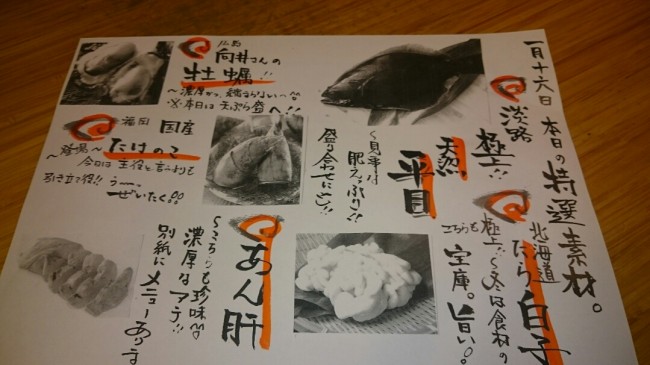 一月十六日 本日の特選素材。
淡路
極上!!
天然
平目
く見事な
肥えっぷり!!
盛り合わせに!!
北海道
たら白子
極上!く冬は食材の
こちらも
宝庫。旨い。
広島
向井さんの
牡蠣!!
~濃厚かつ
※本日は天ぷら盛へ!!
福岡 国産
たけのこ
~登場~
今日は主役と言うよりも
引き立て役!! うー。
ぜいたく
あん肝
こちらも珍味
濃厚なアテ!!
別紙に
メニューあります